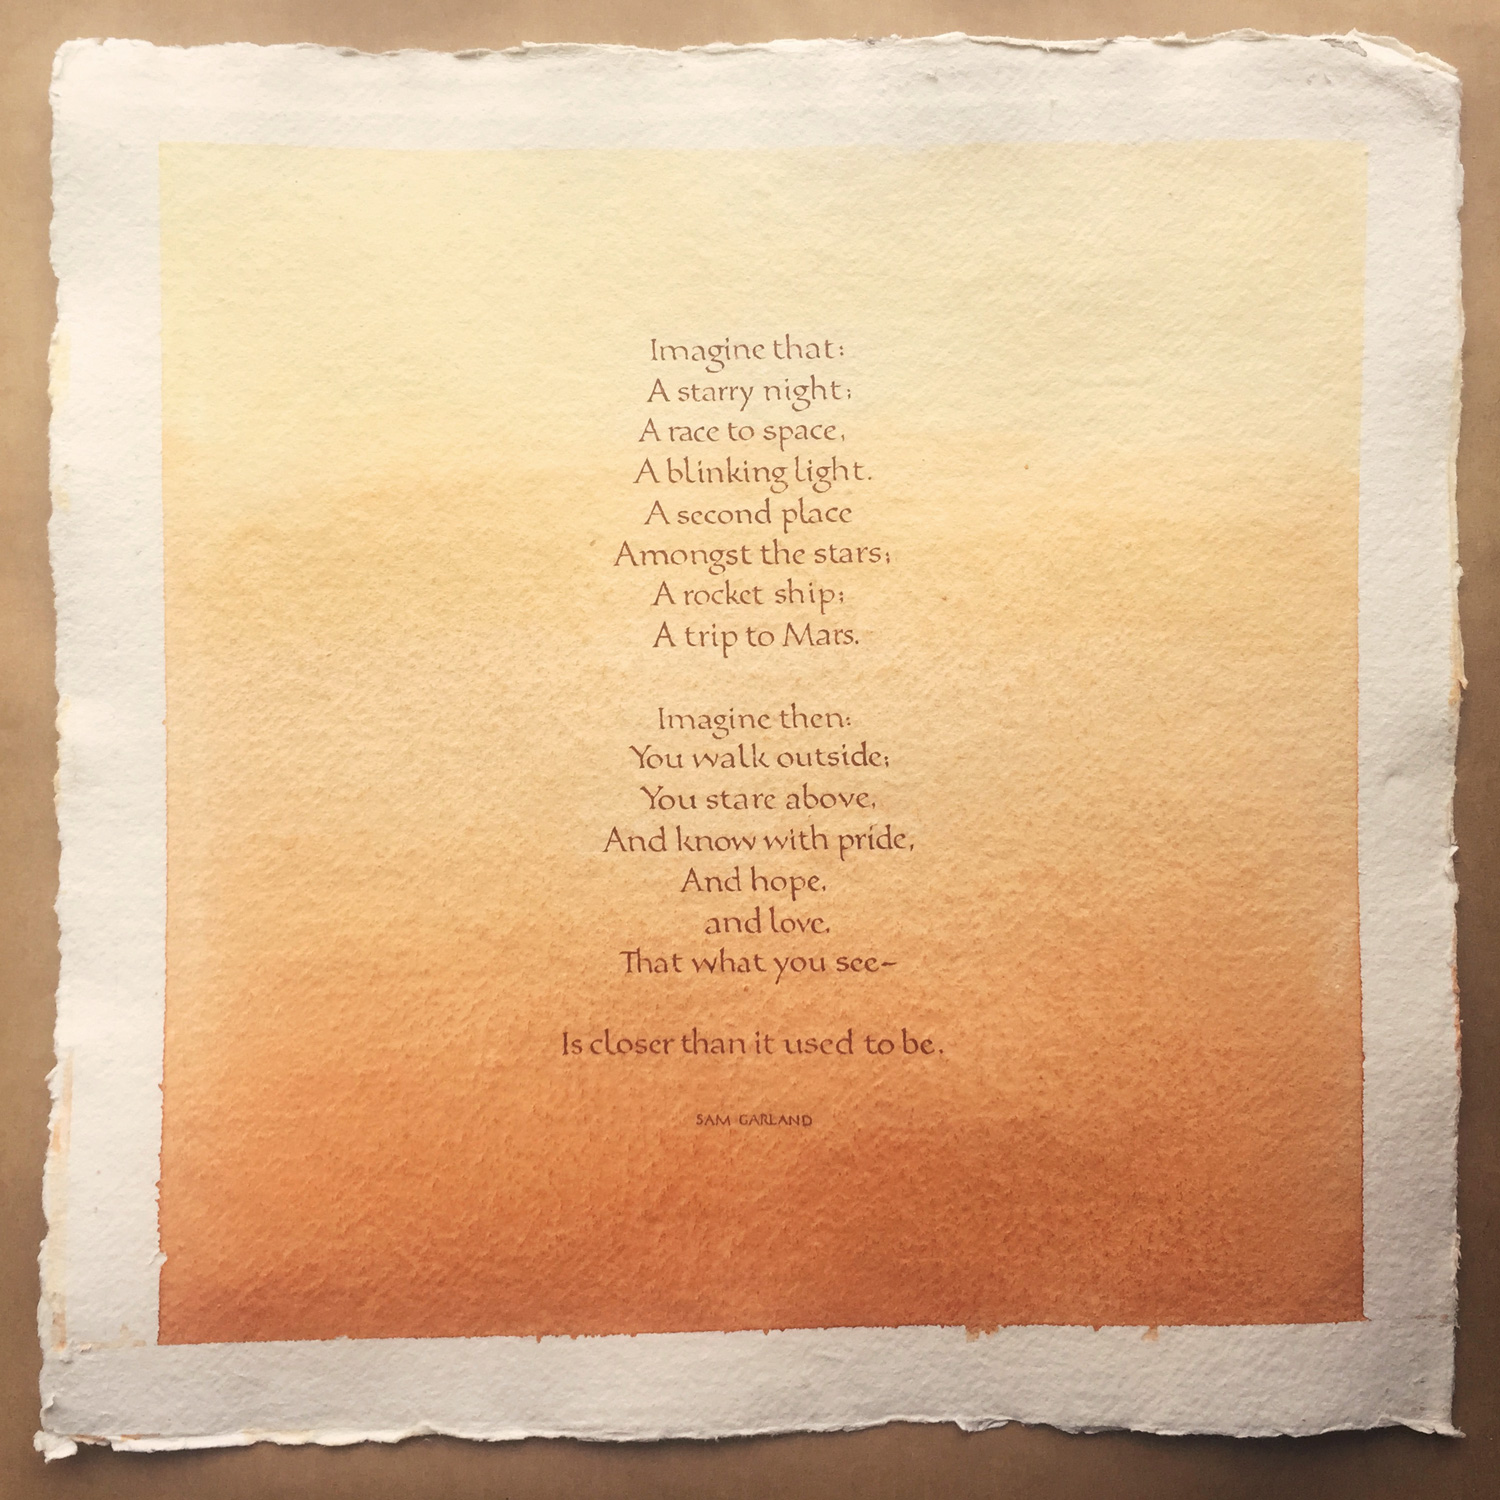 Imagine that:
A starry night;
A race to space,
A blinking light.
A second place
Amongst the stars;
A rocket ship;
A trip to Mars.
Imagine then:
You walk outside;
You stare above,
And know with pride,
And hope,
and love,
That what you see–
Is closer than it used to be.
SAM GARLAND